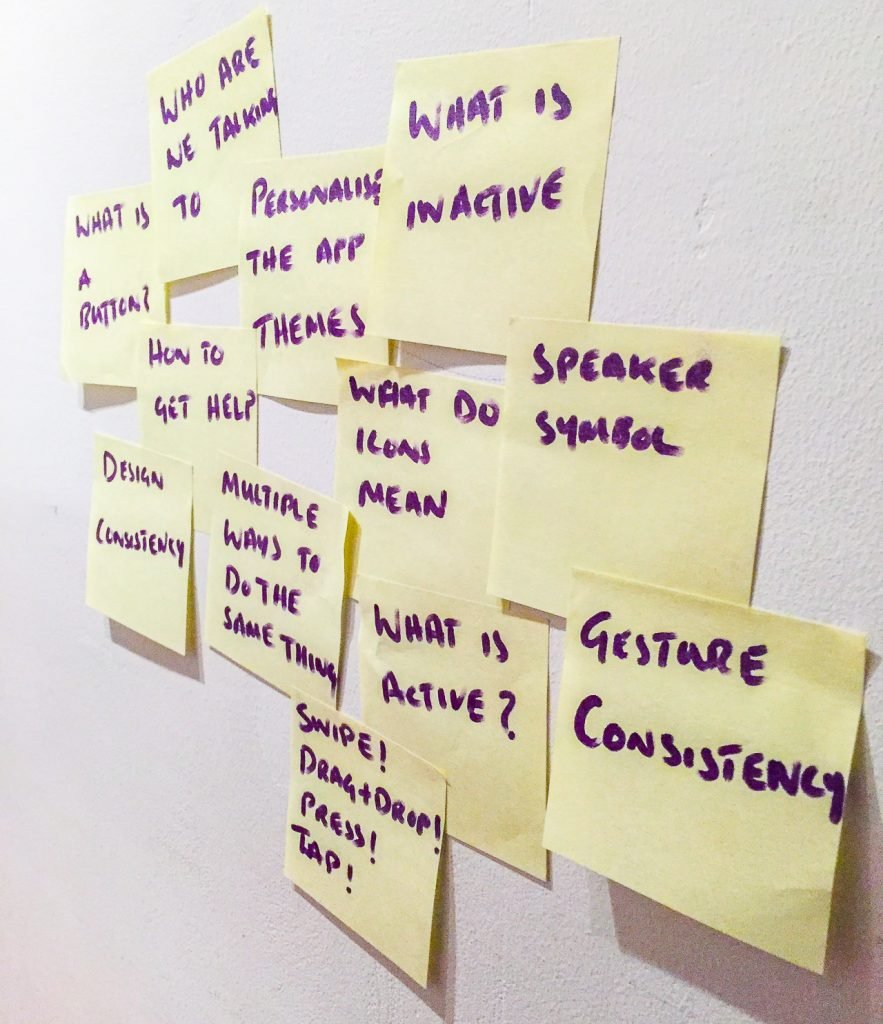 WHO ARE
WE TALKING
TO
WHAT IS
INACTIVE
WHAT IS
A
BUTTON?
PERSONALISE
THE APP
THEMES
HOW TO
GET HELP
WHAT DO
ICONS
MEAN
SPEAKER
SYMBOL
DESIGN
CONSISTENCY
MULTIPLE
WAYS TO
DO THE
SAME THING
WHAT IS
ACTIVE?
GESTURE
CONSISTENCY
SWIPE!
DRAG+DROP!
PRESS!
TAP!